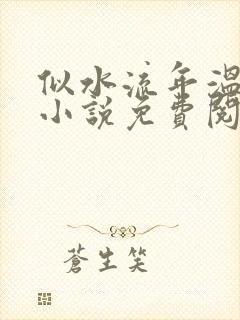 似水流年温
小說免費閱
蒼生笑